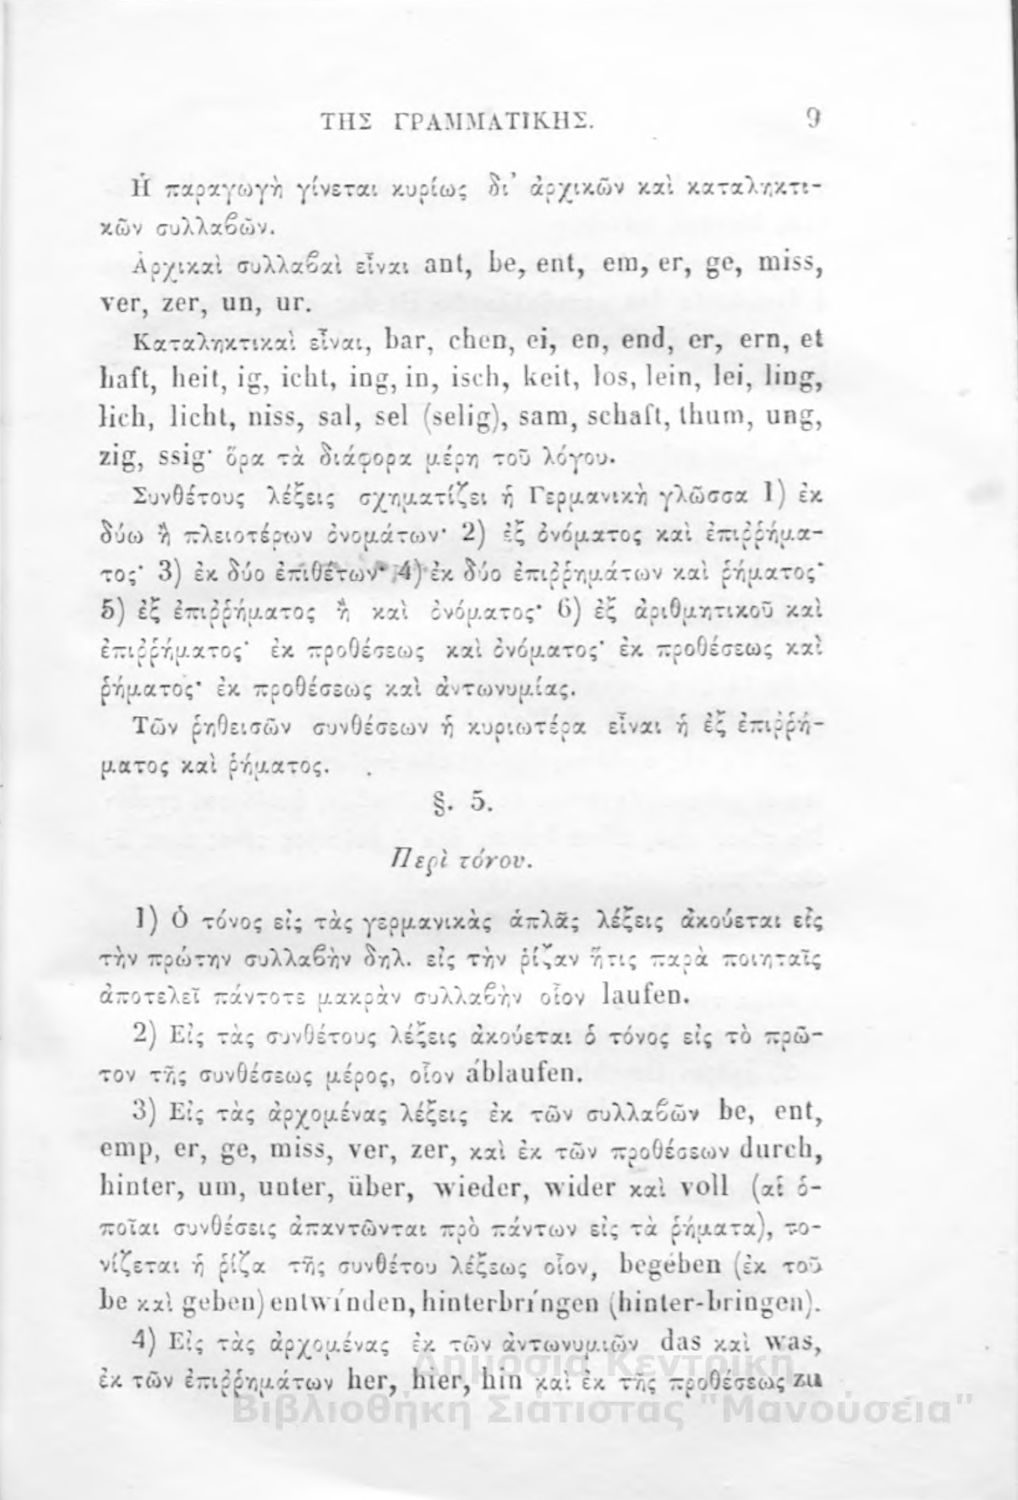 ΤΗΣ ΓΡΑΜΜΑΤΙΚΗΣ. 9
Ἡ παραγωγὴ γίνεται κυρίως δι' ἀρχικῶν καὶ καταληκτι-
κῶν συλλαβῶν.
Ἀρχικαὶ συλλαβαὶ εἶναι ant, be, ent, em, er, ge, miss,
ver, zer, un, ur.
Καταληκτικαὶ εἶναι, bar, chen, ei, en, end, er, ern, et
haft, heit, ig, icht, ing, in, isch, keit, los, lein, lei, ling,
lich, licht, niss, sal, sel (selig), sam, schaft, thum, ung,
zig, ssig· ὅρα τὰ διάφορα μέρη τοῦ λόγου.
Συνθέτους λέξεις σχηματίζει ἡ Γερμανικὴ γλῶσσα 1) ἐκ
δύω ἢ πλειοτέρων ὀνομάτων· 2) ἐξ ὀνόματος καὶ ἐπιῤῥήμα-
τος· 3) ἐκ δύο ἐπιθέτων· 4) ἐκ δύο ἐπιῤῥημάτων καὶ ῥήματος·
5) ἐξ ἐπιῤῥήματος ἢ καὶ ὀνόματος· 6) ἐξ ἀριθμητικοῦ καὶ
ἐπιῤῥήματος· ἐκ προθέσεως καὶ ὀνόματος· ἐκ προθέσεως καὶ
ῥήματος· ἐκ προθέσεως καὶ ἀντωνυμίας.
Τῶν ῥηθεισῶν συνθέσεων ἡ κυριωτέρα εἶναι ἡ ἐξ ἐπιῤῥή-
ματος καὶ ῥήματος.
§. 5.
Περὶ τόνου.
1) Ὁ τόνος εἰς τὰς γερμανικὰς ἁπλᾶς λέξεις ἀκούεται εἰς
τὴν πρώτην συλλαβὴν δηλ. εἰς τὴν ῥίζαν ἥτις παρὰ ποιηταῖς
ἀποτελεῖ πάντοτε μακρὰν συλλαβὴν οἷον laufen.
2) Εἰς τὰς συνθέτους λέξεις ἀκούεται ὁ τόνος εἰς τὸ πρῶ-
τον τῆς συνθέσεως μέρος, οἷον áblaufen.
3) Εἰς τὰς ἀρχομένας λέξεις ἐκ τῶν συλλαβῶν be, ent,
emp, er, ge, miss, ver, zer, καὶ ἐκ τῶν προθέσεων durch,
hinter, um, unter, über, wieder, wider καὶ voll (αἱ ὁ-
ποῖαι συνθέσεις ἀπαντῶνται πρὸ πάντων εἰς τὰ ῥήματα), το-
νίζεται ἡ ῥίζα τῆς συνθέτου λέξεως οἷον, begében (ἐκ τοῦ
be καὶ geben) entwínden, hinterbríngen (hinter-bringen).
4) Εἰς τὰς ἀρχομένας ἐκ τῶν ἀντωνυμιῶν das καὶ was,
ἐκ τῶν ἐπιῤῥημάτων her, hier, hin καὶ ἐκ τῆς προθέσεως zu
Δημόσια Κεντρική
Βιβλιοθήκη Σιάτιστας "Μανούσεια"